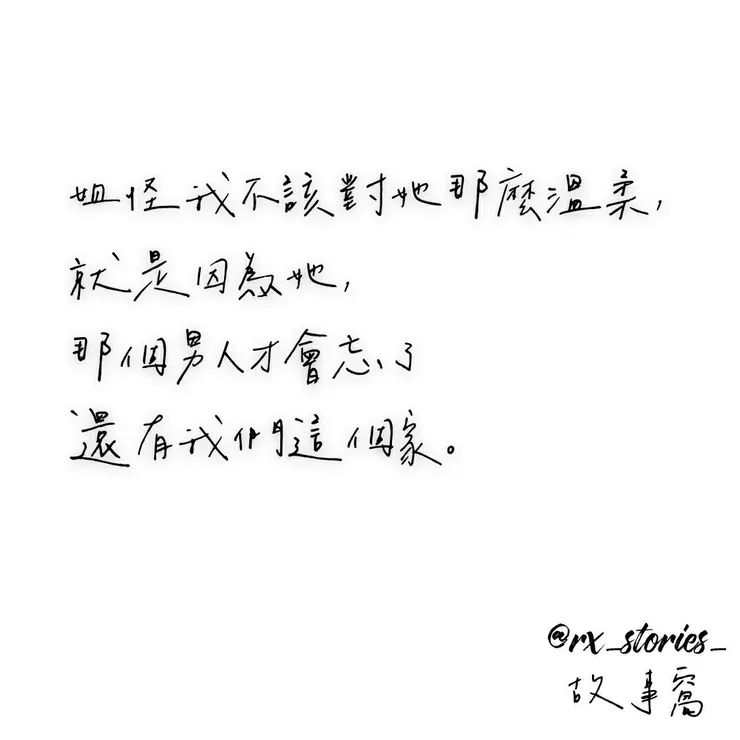 姐怪我不該對她那麼溫柔,
就是因為她,
那個男人才會忘了
還有我們這個家。
@rx_stories_
故事窩